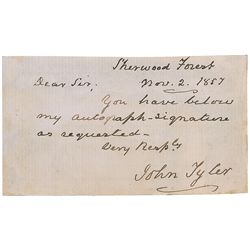 Sherwood Forest
Nov. 2. 1857
Dear Sir,
You have below
my autograph-signature
as requested-
Very Resply
John Tyler